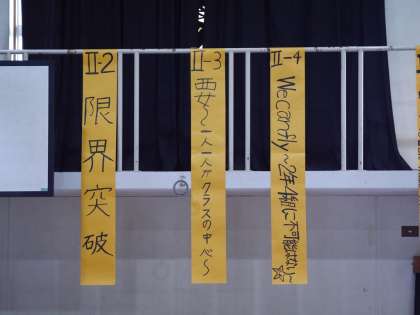 Ⅱ-2
限界突破
Ⅱ-3
要～一人一人がクラスの中心～
Ⅱ-4
We can fly～2年4組に不可能はない～☆